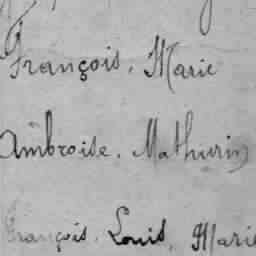 François, Marie
Ambroise, Mathurin
François, Louis, Marie